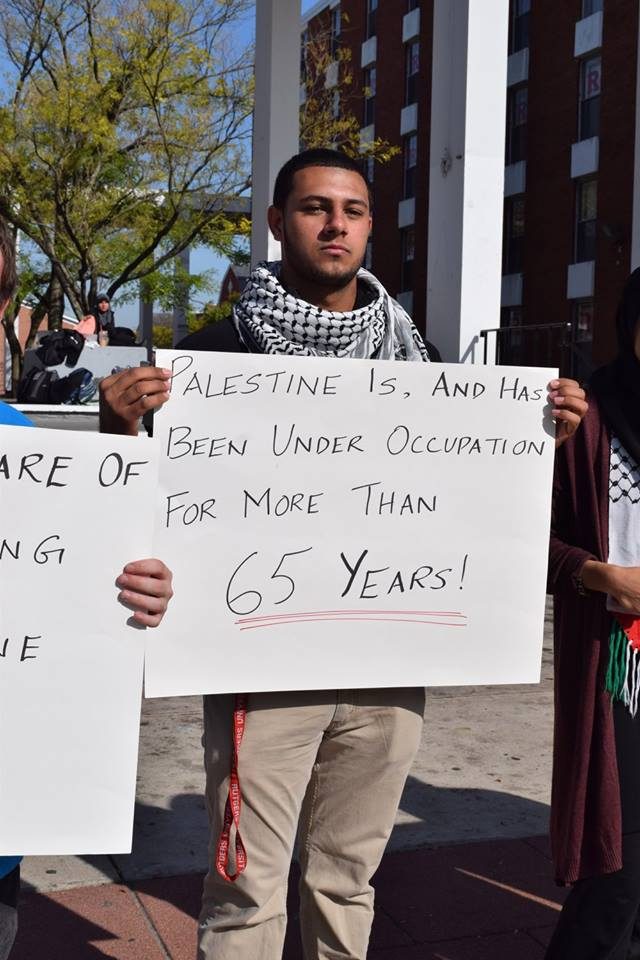 PALESTINE IS, AND HAS
BEEN UNDER OCCUPATION
FOR MORE THAN
65 YEARS!
ARE OF
NG
NE
RUTGERS
R